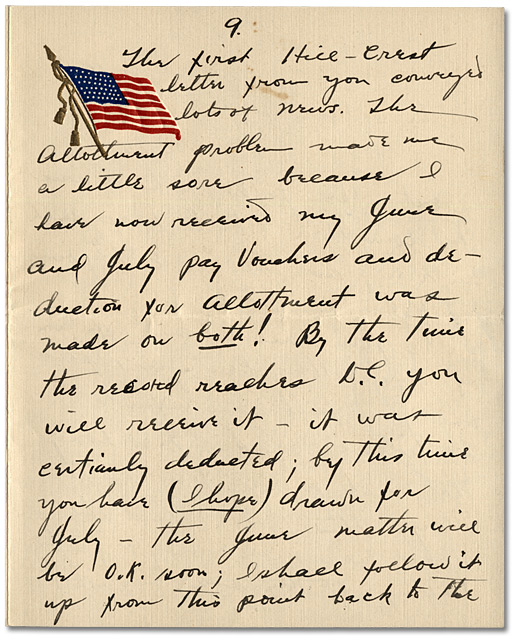 9.
The first Hill-Crest
letter from you conveyed
lots of news. The
Allottment problem made me
a little sore because I
have now received my June
and July pay Vouchers and de-
duction for Allottment was
made on both! By the time
the record reaches D.C. you
will receive it - it was
certianly deducted; by this time
you have (I hope) drawn for
July - the June matter will
be O.K. soon; I shall follow it
up from this point back to the